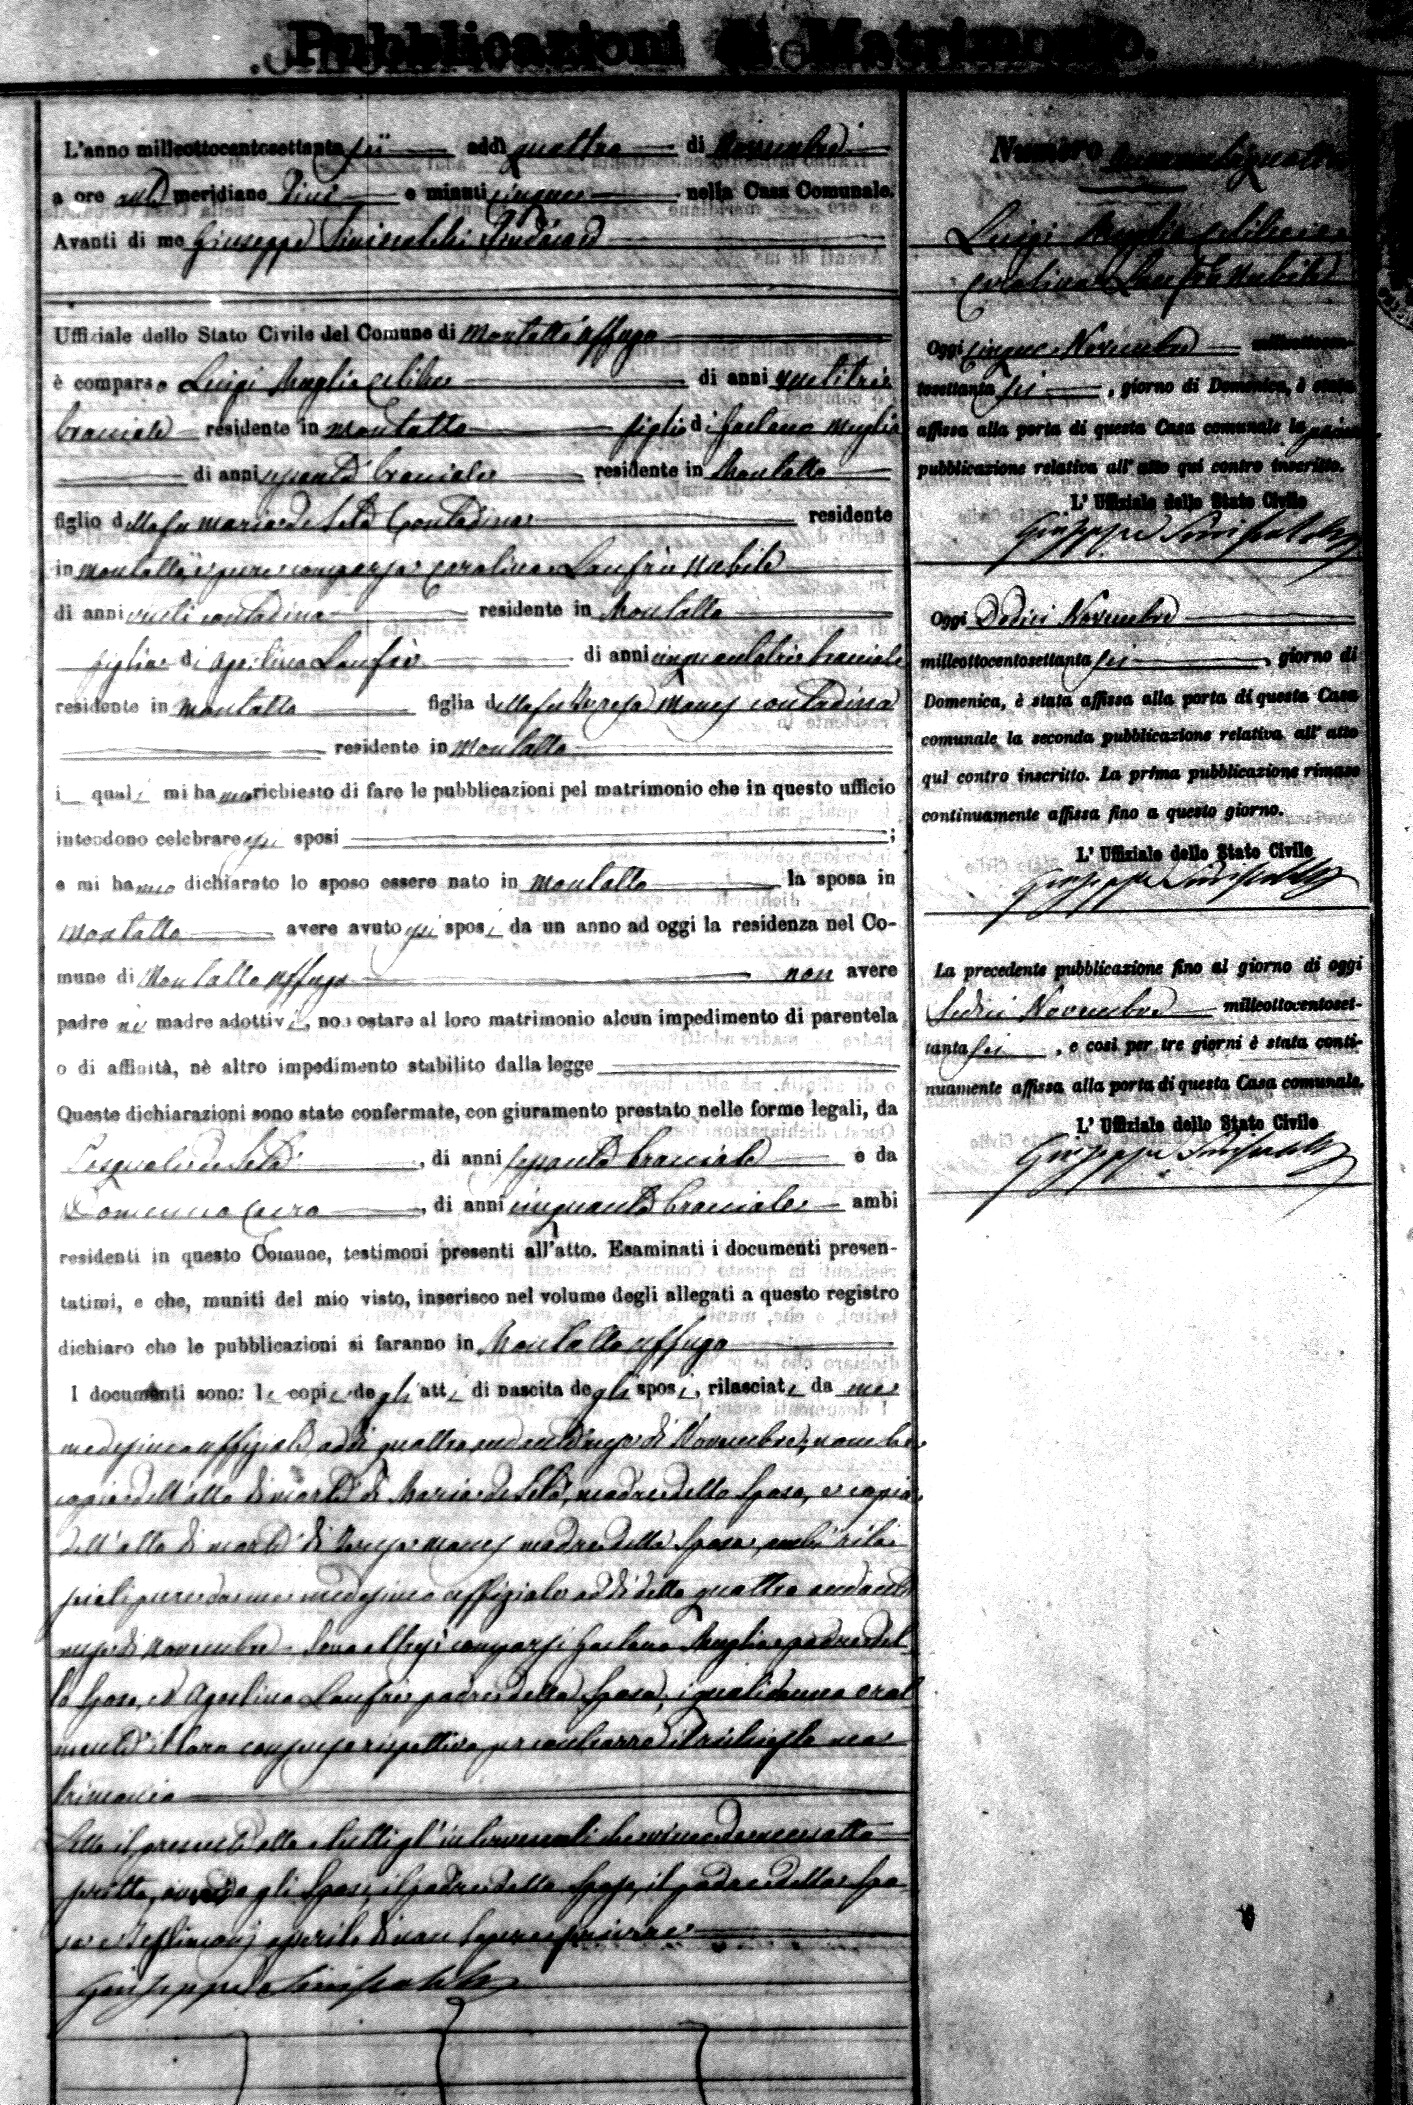 Pubblicazioni di Matrimonio.
L'anno milleottocentosettanta sei addì quattro di Novembre
a ore anti meridiane dieci e minuti cinque nella Casa Comunale.
Avanti di me Giuseppe Siniscalchi Sindaco
Uffiziale dello Stato Civile del Comune di Montalto Uffugo
è comparso Luigi Muglia celibe di anni ventitrè
bracciale residente in Montalto figlio di Gaetano Muglia
di anni sessanta bracciale residente in Montalto
figlio della fu Maria de Seta contadina residente
in Montalto, è pure comparsa Carolina Lanfrè nubile
di anni venti contadina residente in Montalto
figlia di Agostino Lanfrè di anni cinquantatrè bracciale
residente in Montalto figlia della fu Teresa contadina
residente in Montalto
i quali mi hanno richiesto di fare le pubblicazioni pel matrimonio che in questo ufficio
intendono celebrare gli sposi ;
e mi hanno dichiarato lo sposo essere nato in Montalto la sposa in
Montalto avere avuto gli sposi da un anno ad oggi la residenza nel Co-
mune di Montalto Uffugo non avere
padre nè madre adottivi, non ostare al loro matrimonio alcun impedimento di parentela
o di affinità, nè altro impedimento stabilito dalla legge
Queste dichiarazioni sono state confermate, con giuramento prestato nelle forme legali, da
Pasquale de Seta, di anni sessanta bracciale e da
Domenico, di anni cinquanta bracciale ambi
residenti in questo Comune, testimoni presenti all'atto. Esaminati i documenti presen-
tatimi, e che, muniti del mio visto, inserisco nel volume degli allegati a questo registro
dichiaro che le pubblicazioni si faranno in Montalto Uffugo
I documenti sono: le copie degli atti di nascita degli sposi, rilasciate da me
medesimo uffiziale addì quattro andante mese di Novembre; nonché
copia dell'atto di morte di Maria de Seta, madre dello sposo, e copia
dell'atto di morte di Teresa madre della sposa, ambi rila-
sciati pure da me medesimo uffiziale addì detto quattro andante
mese di Novembre. Sono altresì comparsi Gaetano Muglia padre del-
lo sposo, ed Agostino Lanfrè padre della sposa, i quali danno oral
mente il loro consenso rispettivo per contrarre il richiesto ma-
trimonio
Letto il presente atto a tutti gl'intervenuti l'ho meco
scritto, gli sposi, il padre dello sposo, il padre della spo-
sa e testimonj asserito di non sapere scrivere
Giuseppe Siniscalchi
Numero
Luigi Muglia celibe
Carolina Lanfrè nubile
Oggi cinque Novembre milleottocen-
tosettanta sei, giorno di Domenica, è stata
affissa alla porta di questa Casa comunale la prima
pubblicazione relativa all'atto qui contro inscritto.
L'Uffiziale dello Stato Civile
Giuseppe Siniscalchi
Oggi Dodici Novembre
milleottocentosettanta sei, giorno di
Domenica, è stata affissa alla porta di questa Casa
comunale la seconda pubblicazione relativa all'atto
qui contro inscritto. La prima pubblicazione rimase
continuamente affissa fino a questo giorno.
L'Uffiziale dello Stato Civile
Giuseppe Siniscalchi
La precedente pubblicazione fino al giorno di oggi
Sedici Novembre milleottocentoset-
tanta sei, e così per tre giorni è stata conti-
nuamente affissa alla porta di questa Casa comunale.
L'Uffiziale dello Stato Civile
Giuseppe Siniscalchi